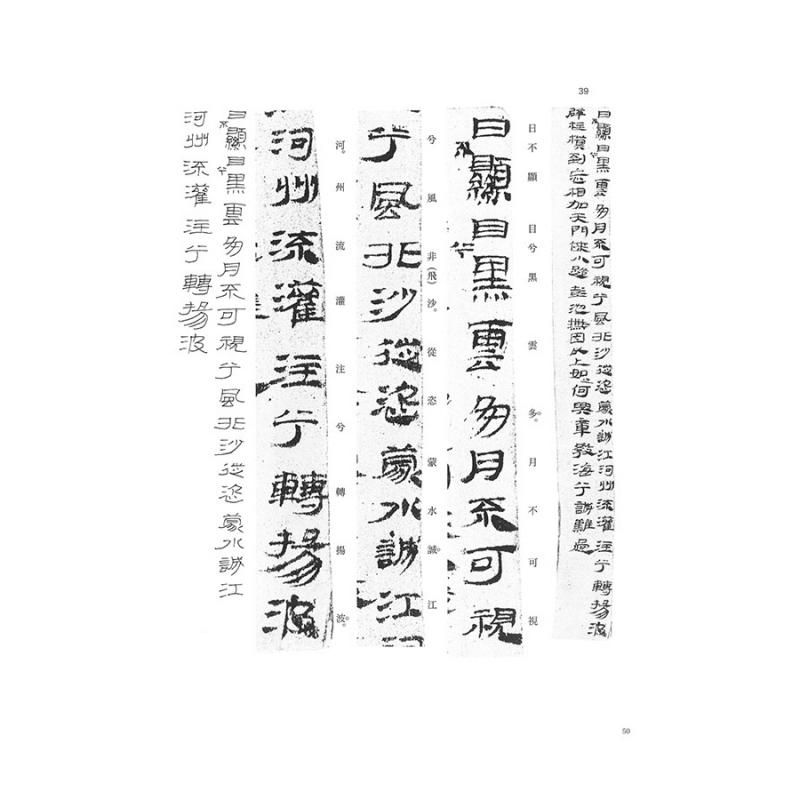 39
日不顯目兮黑雲多月不可視兮風非沙從恣蒙水誠江河州流灌注兮轉揚波
辟柱槙到忘相加天門俠小路彭池無因以上如之何興章教海兮誠難過
日不顯目兮黑雲多。月不可視
日不顯目兮黑雲多月不可視
兮風非(飛)沙。從恣蒙水誠江
兮風非沙從恣蒙水誠江
河。州流灌注兮轉揚波。
河州流灌注兮轉揚波
日不顯目兮黑雲多月不可視兮風非沙從恣蒙水誠江
河州流灌注兮轉揚波
50